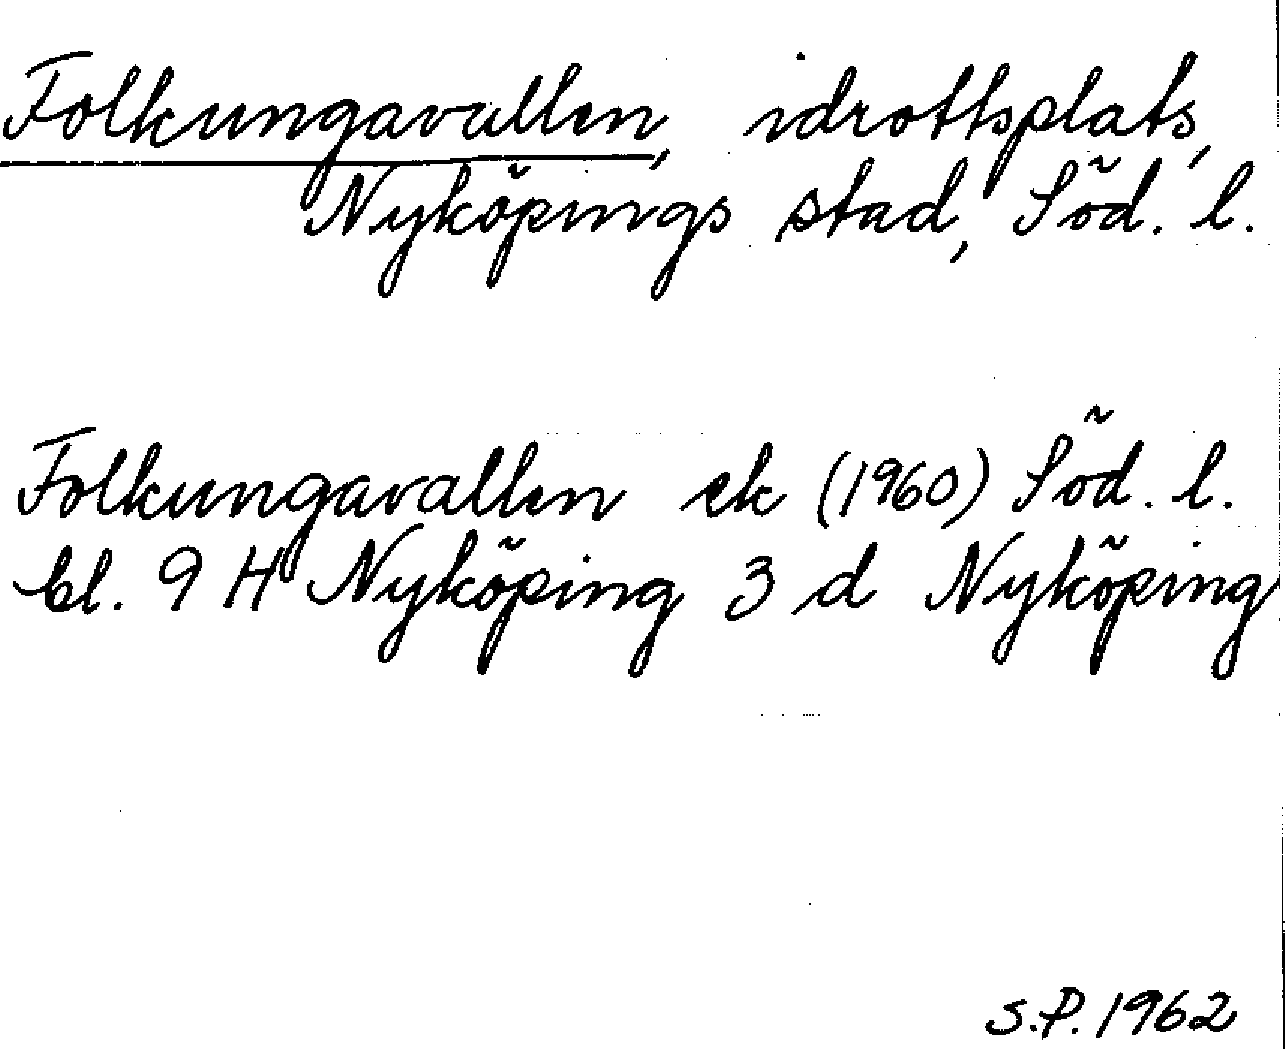 Folkungavallen, idrottsplats,
Nyköpings stad, Söd. l.
Folkungavallen ek (1960) Söd. l.
bl. 9 H Nyköping 3 d Nyköping
S.P. 1962